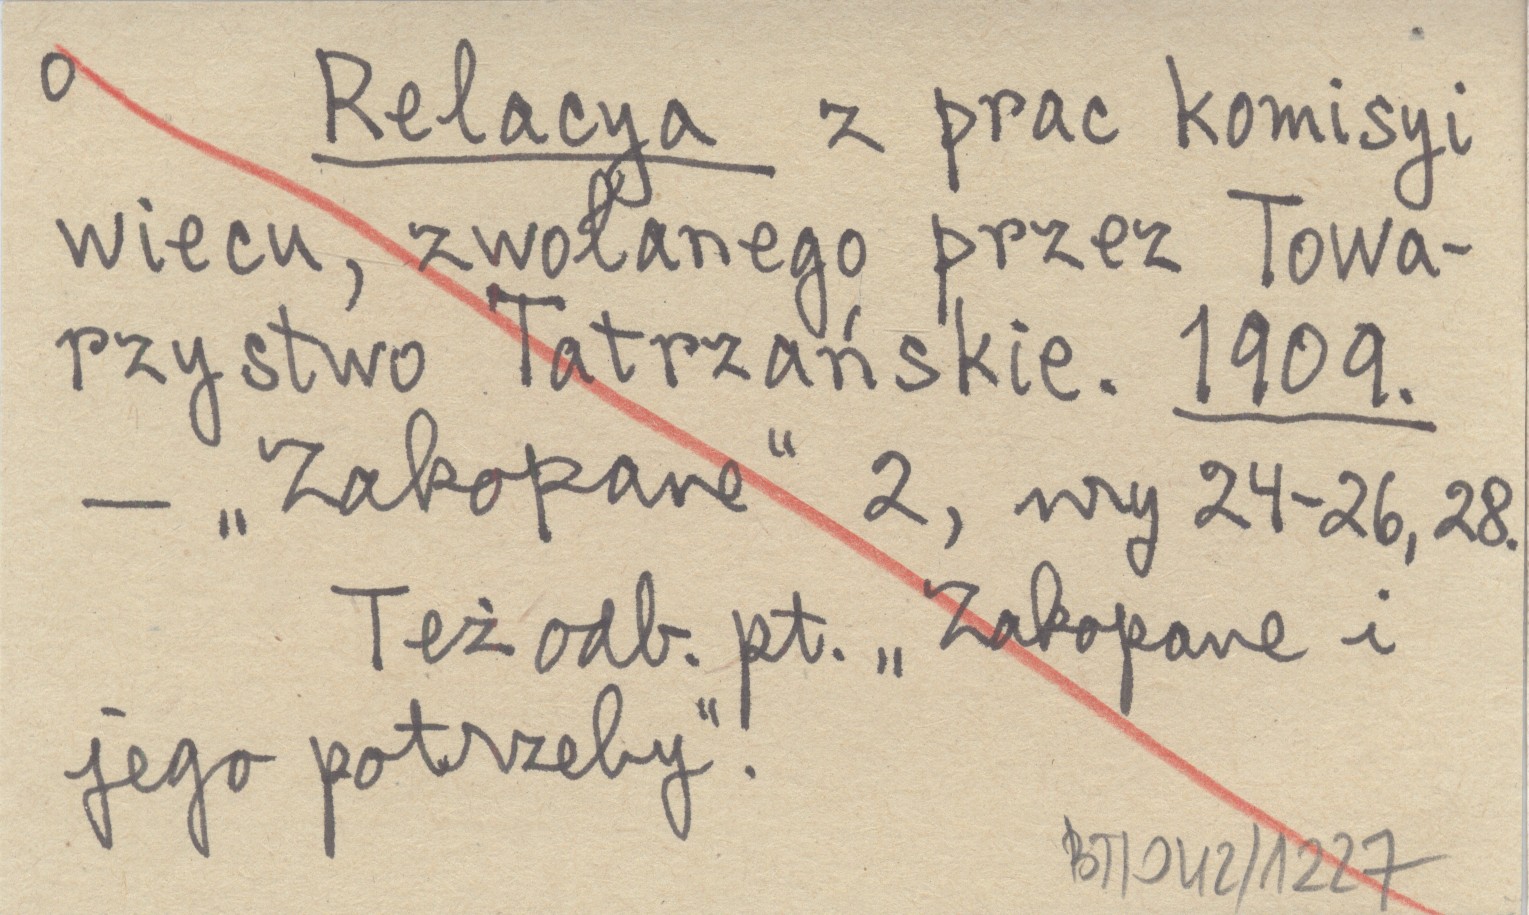 o Relacya z prac komisyi
wiecu, zwołanego przez Towa-
rzystwo Tatrzańskie. 1909.
— „Zakopane" 2, nry 24-26, 28.
Też odb. pt. „Zakopane i
jego potrzeby".
BT/042/1227